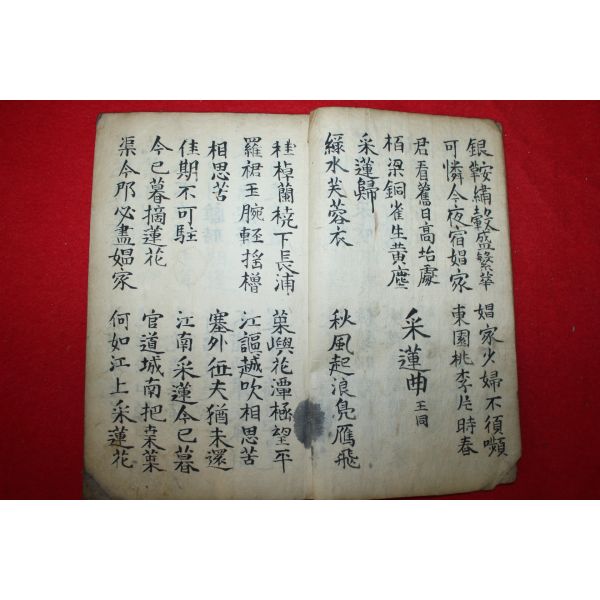 銀鞍繡轂盛繁華
可憐今夜宿娼家
娼家少婦不須嚬
東園桃李片時春
君看舊日高坮處
栢梁銅雀生黄塵
采蓮曲 王同
采蓮歸
綠水芙蓉衣
秋風起浪鳧雁飛
桂棹蘭橈下長浦
羅裙玉腕輕搖櫓
葉嶼花潭極望平
江謳越吹相思苦
相思苦
佳期不可駐
塞外征夫猶未還
江南采蓮今已暮
今已暮摘蓮花
渠今那必盡娼家
官道城南把桒葉
何如江上采蓮花